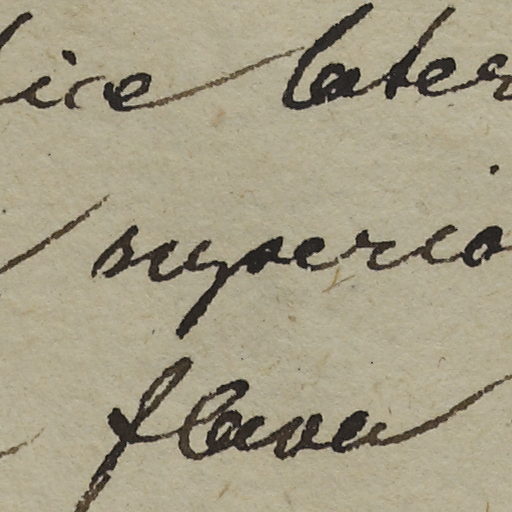 lice later
superio
flava